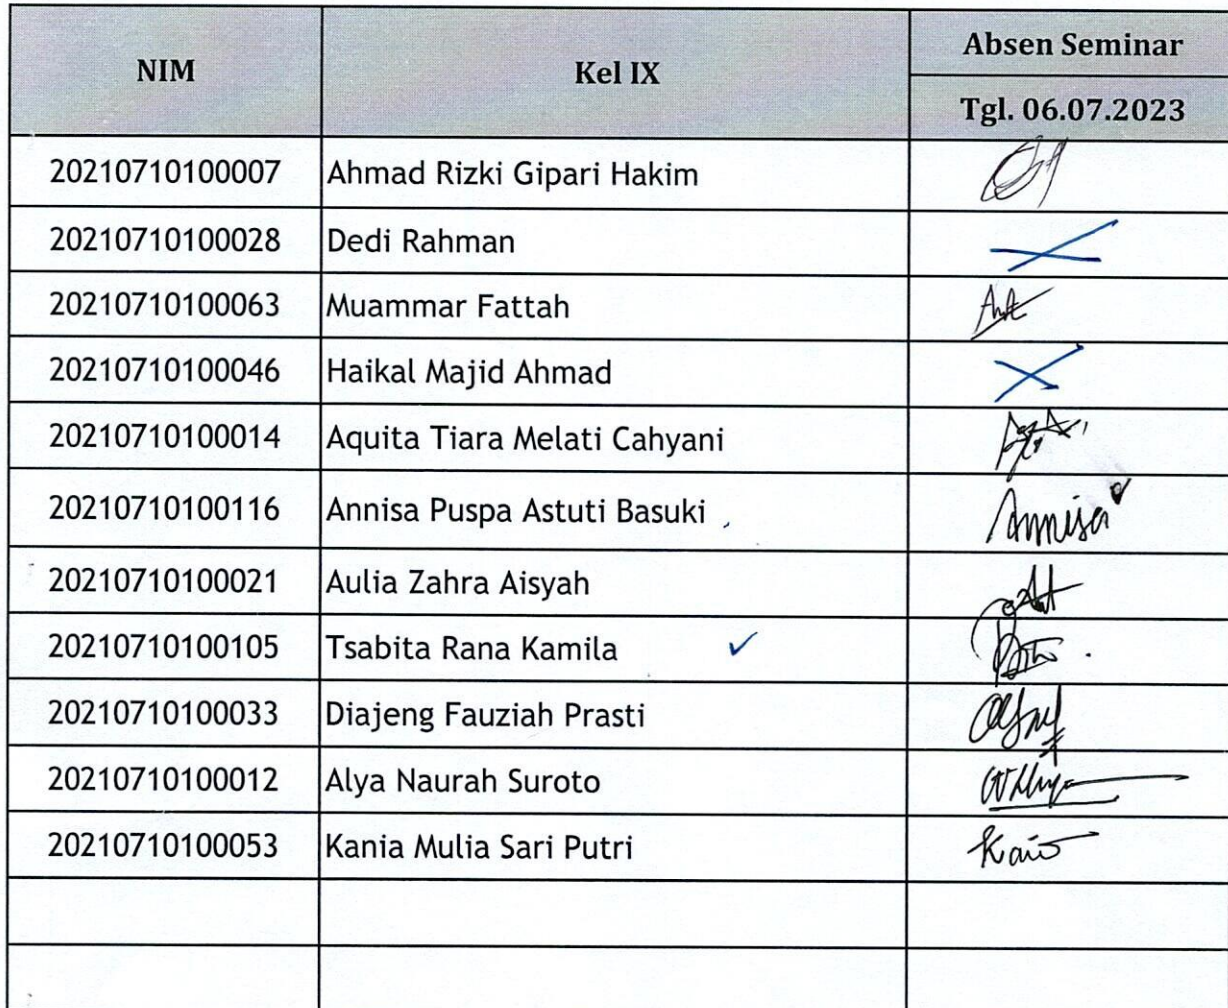 NIM Kel IX Absen Seminar
Tgl. 06.07.2023
20210710100007 Ahmad Rizki Gipari Hakim
20210710100028 Dedi Rahman
20210710100063 Muammar Fattah
20210710100046 Haikal Majid Ahmad
20210710100014 Aquita Tiara Melati Cahyani
20210710100116 Annisa Puspa Astuti Basuki Annisa
20210710100021 Aulia Zahra Aisyah
20210710100105 Tsabita Rana Kamila ✓
20210710100033 Diajeng Fauziah Prasti
20210710100012 Alya Naurah Suroto
20210710100053 Kania Mulia Sari Putri